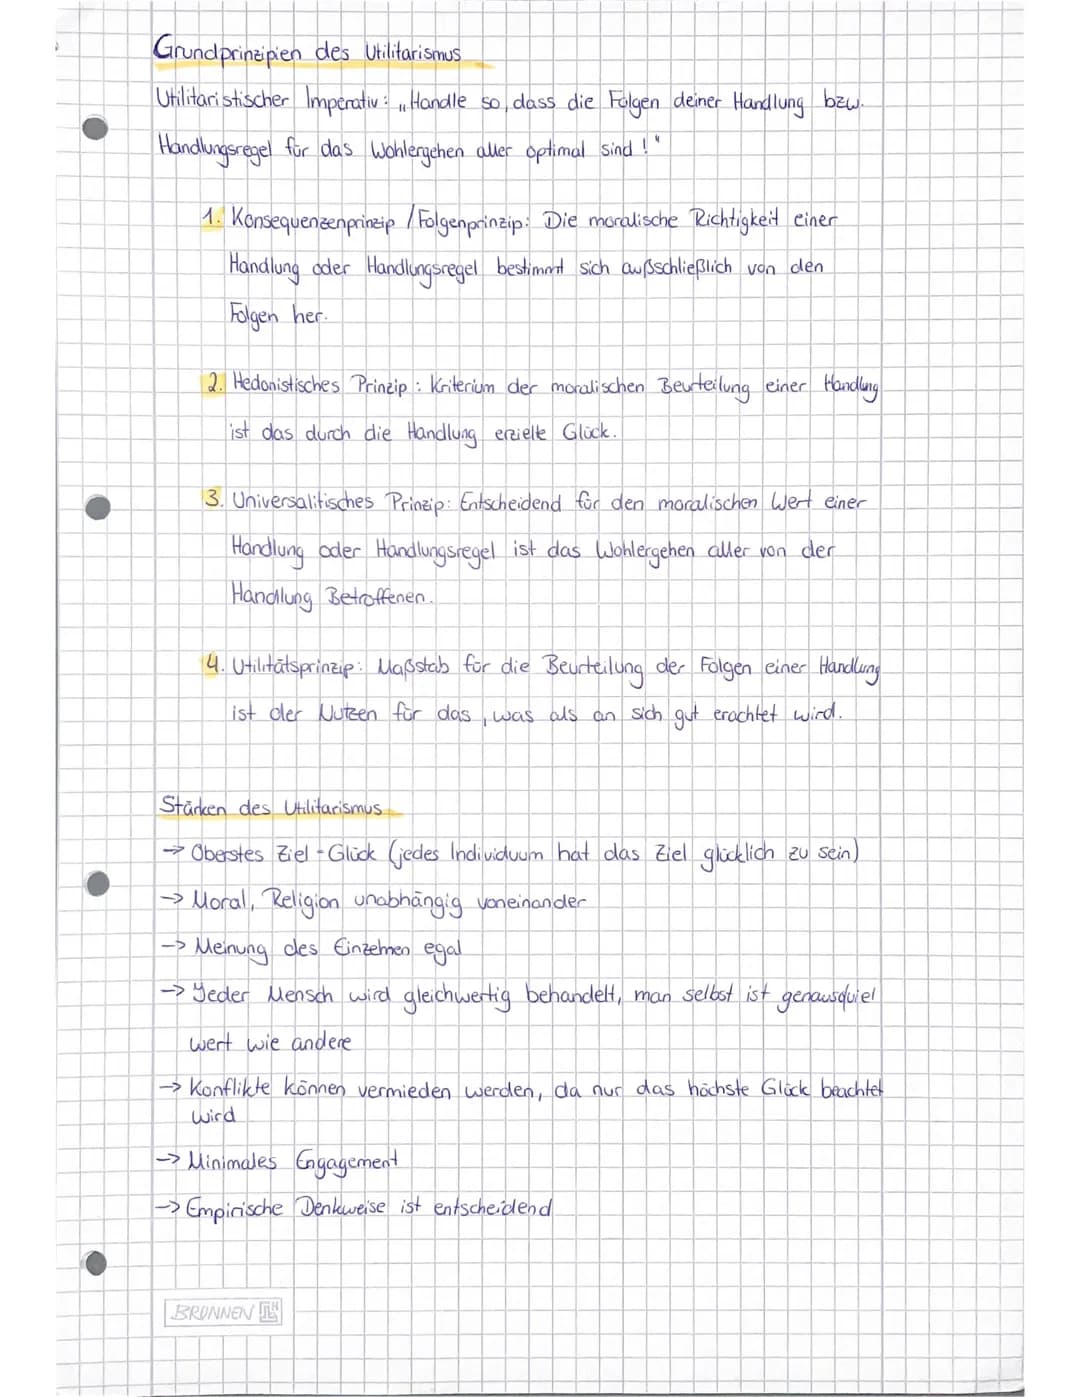 Grundprinzipien des Utilitarismus
Utilitaristischer Imperativ: „Handle so, dass die Folgen deiner Handlung bzw.
Handlungsregel für das Wohlergehen aller optimal sind!"
1. Konsequenzenprinzip / Folgenprinzip: Die moralische Richtigkeit einer
Handlung oder Handlungsregel bestimmt sich außschließlich von den
Folgen her.
2. Hedonistisches Prinzip: Kriterium der moralischen Beurteilung einer Handlung
ist das durch die Handlung erzielte Glück.
3. Universalitisches Prinzip: Entscheidend für den moralischen Wert einer
Handlung oder Handlungsregel ist das Wohlergehen aller von der
Handlung Betroffenen.
4. Utilitätsprinzip: Maßstab für die Beurteilung der Folgen einer Handlung
ist der Nutzen für das, was als an sich gut erachtet wird.
Stärken des Utilitarismus
→ Oberstes Ziel - Glück (jedes Individuum hat das Ziel glücklich zu sein)
→ Moral, Religion unabhängig voneinander
→ Meinung des Einzelnen egal
→ Jeder Mensch wird gleichwertig behandelt, man selbst ist genausoviel
wert wie andere
→ Konflikte können vermieden werden, da nur das höchste Glück beachtet
wird
→ Minimales Engagement
→ Empirische Denkweise ist entscheidend
BRUNNEN